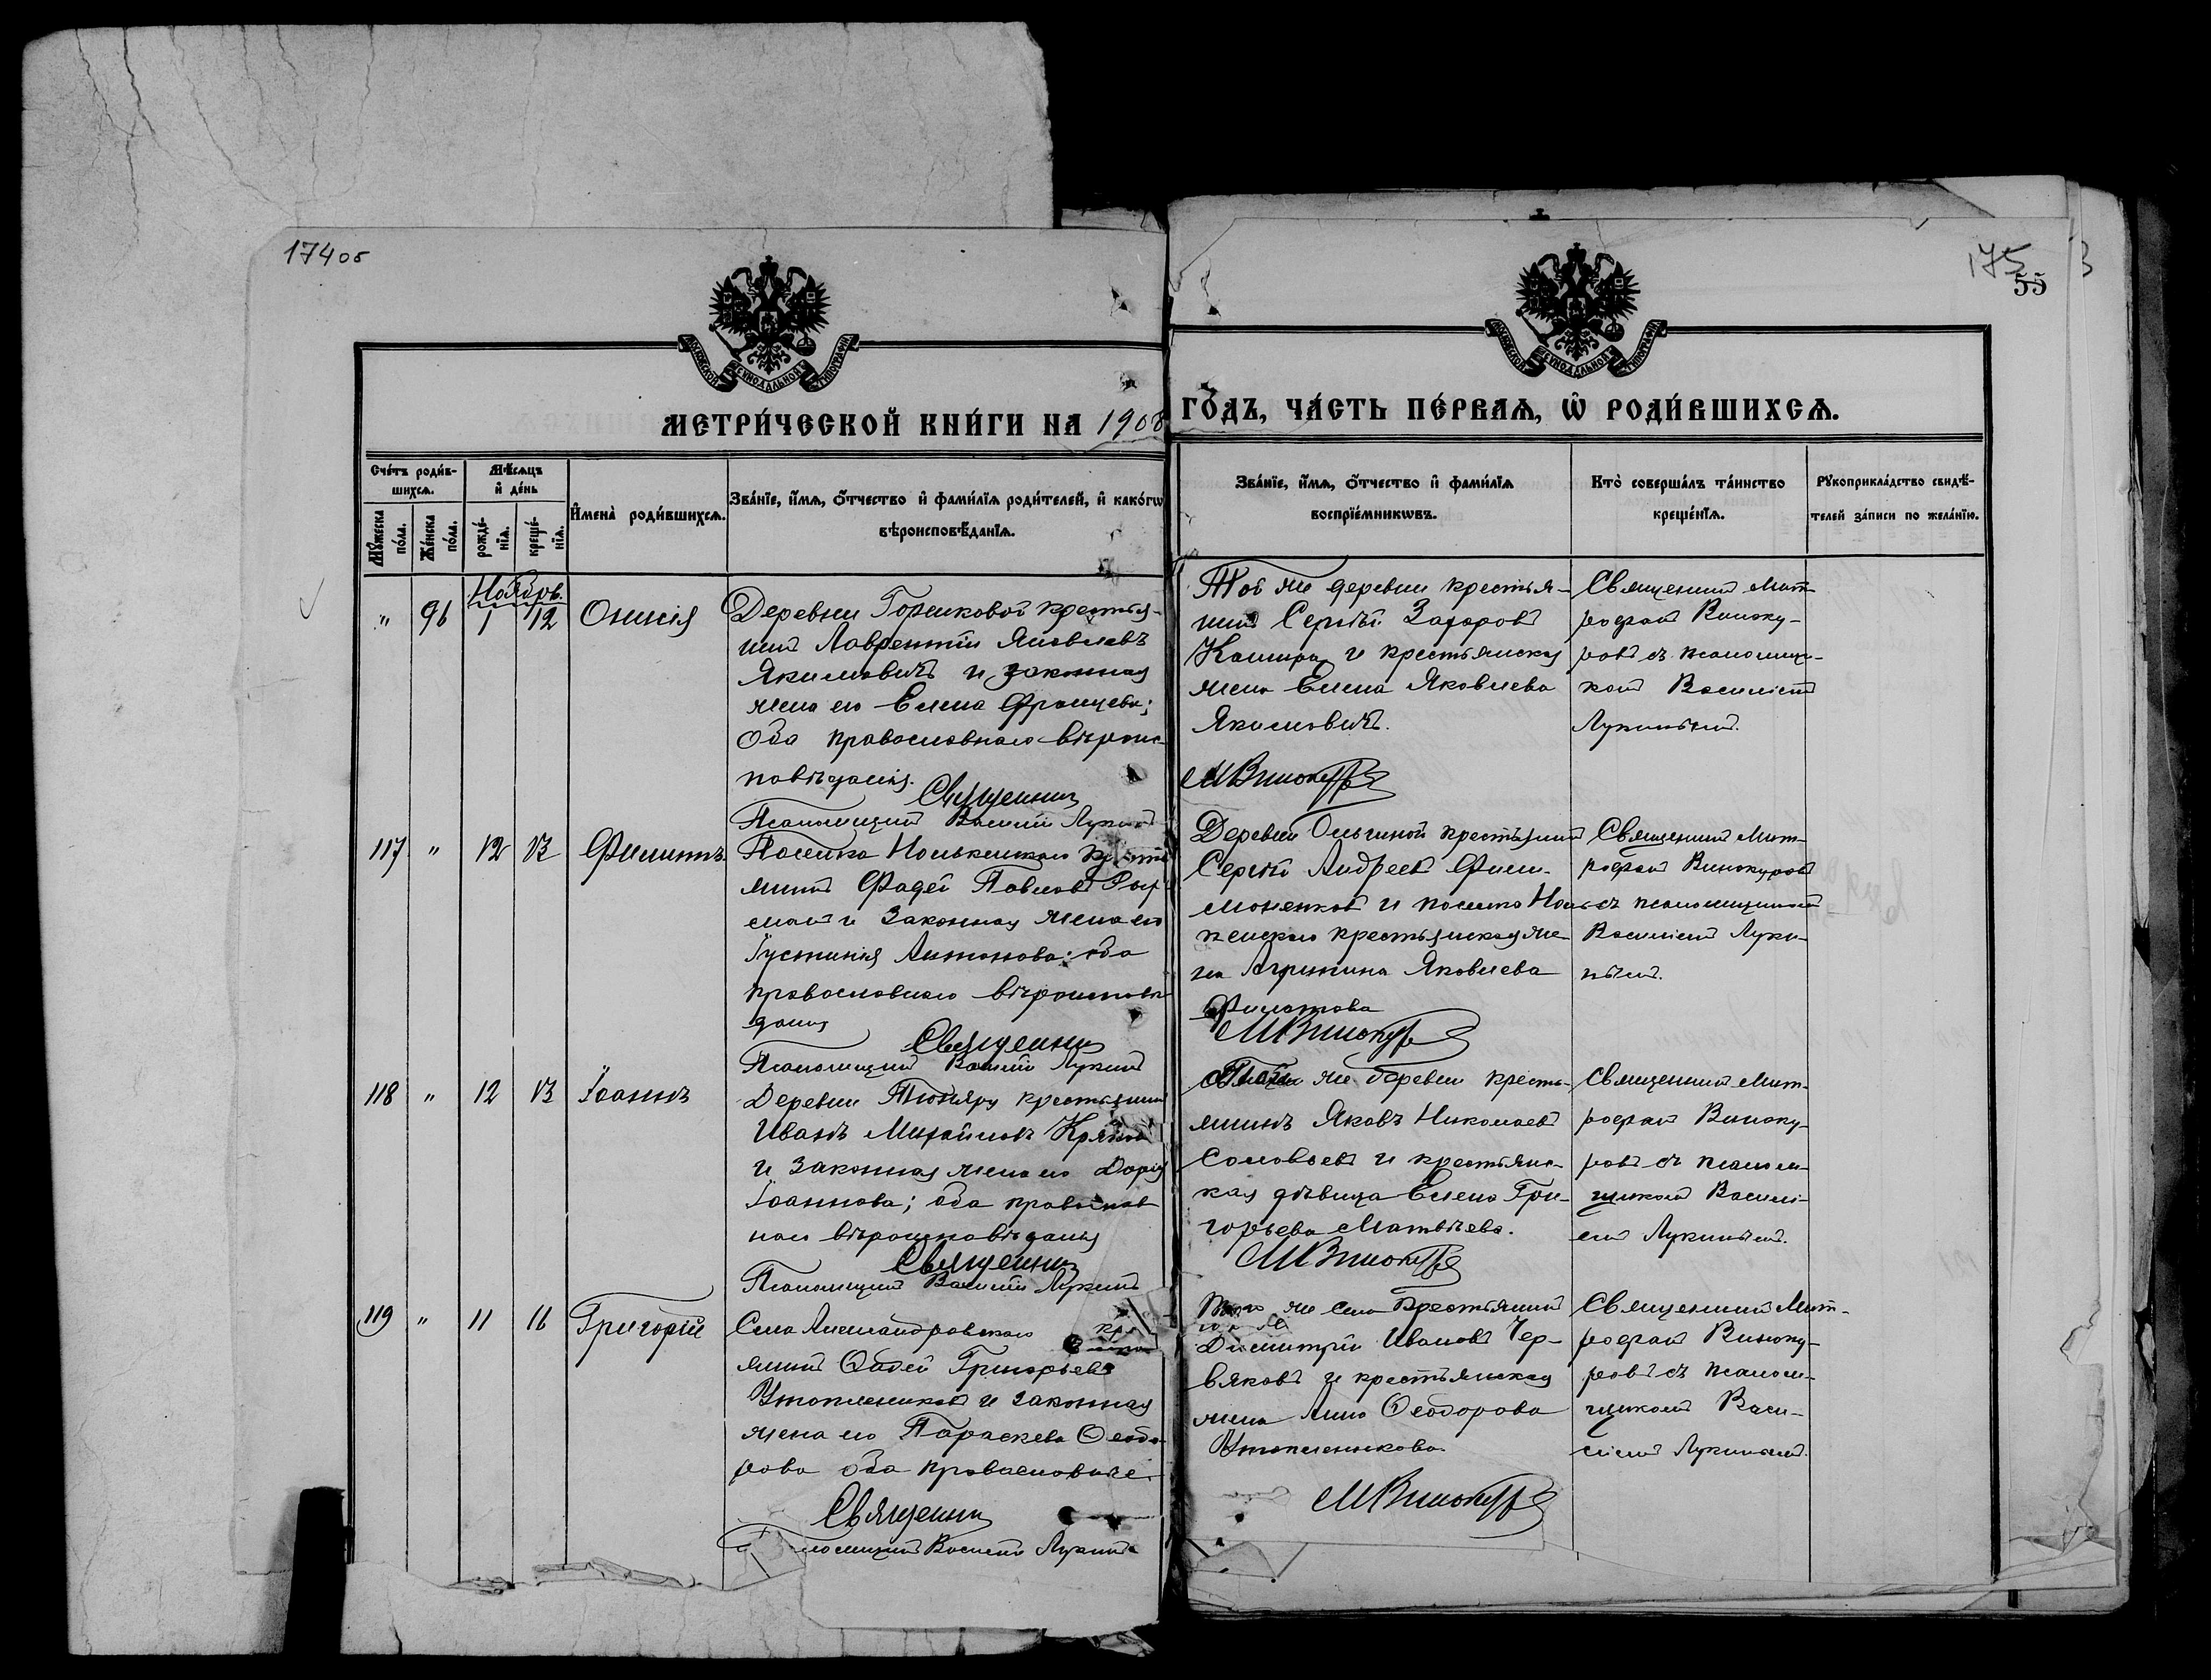 174об
175
55
МЕТРИ́ЧЕСКОЙ КНИ́ГИ НА 1908 ГО́ДЪ, ЧА́СТЬ ПЕ́РВАЯ, Ѡ҆ РОДИ́ВШИХСЯ.
Сче́тъ роди́в-
шихся.
Мѣ́сяцъ
и҆ де́нь
Му́жеска
по́ла.
Же́нска
по́ла.
рожде́-
нїя.
креще́-
нїя.
И҆мена̀ роди́вшихся.
Зва́нїе, и҆́мя, ѻ҆́тчество и҆ фами́лїя роди́телей, и҆ како́гѡ
вѣроисповѣ́данїя.
Зва́нїе, и҆́мя, ѻ҆́тчество и҆ фами́лїя
воспрїе́мникѡвъ.
Кто̀ соверша́лъ та́инство
креще́нїя.
Рꙋкоприкла́дство свидѣ́-
телей за́писи по жела́нїю.
Ноябрь.
" 96 1 12 Онисія
Деревни Горшковой крестья-
нинъ Лаврентій Яковлевъ
Якимовичъ и законная
жена его Елена Францева;
Оба православнаго вѣроис-
повѣданія.
Священникъ
Псаломщикъ Василій Лукинъ
Той же деревни крестья-
нинъ Сергѣй Захаровъ
Кашира и крестьянская
жена Елена Яковлева
Якимовичъ.
МВинокуровъ
Священникъ Мит-
рофанъ Виноку-
ровъ съ псаломщи-
комъ Василіемъ
Лукинымъ.
117 " 12 13 Филиппъ
Поселка
Фадей Павловъ
и законная жена его
Іустинія Антонова; оба
православнаго вѣроисповѣ-
данія
Священникъ
Псаломщикъ Василій Лукинъ
Деревни Ольгиной крестьянинъ
Сергѣй Андреевъ Фили-
моненковъ и поселка
крестьянская же-
на Агрипина Яковлева
Филатова
МВинокуровъ
Священникъ Мит-
рофанъ Винокуровъ
съ псаломщикомъ
Василіемъ Луки-
нымъ.
118 " 12 13 Іоаннъ
Деревни крестьянинъ
Иванъ Михайловъ
и законная жена его Дарія
Іоаннова; оба православ-
наго вѣроисповѣданія
Священникъ
Псаломщикъ Василій Лукинъ
же деревни кресть-
янинъ Яковъ Николаевъ
Соловьевъ и крестьянс-
кая дѣвица Елена Гри-
горьева Матвѣева.
МВинокуровъ
Священникъ Мит-
рофанъ Виноку-
ровъ съ псалом-
щикомъ Василі-
емъ Лукинымъ.
119 " 11 16 Григорій
Села Александровскаго кре
янинъ Фадей Григорьевъ
Утопленниковъ и законная
жена его Параскева Ѳеодо-
рова оба православные.
Священникъ
Псаломщикъ Василій Лукинъ
Того же села крестьянинъ
Димитрій Ивановъ Чер-
вяковъ и крестьянская
жена Анна Ѳеодорова
Утопленникова
МВинокуровъ
Священникъ Мит-
рофанъ Виноку-
ровъ съ псалом-
щикомъ Васи-
ліемъ Лукинымъ.